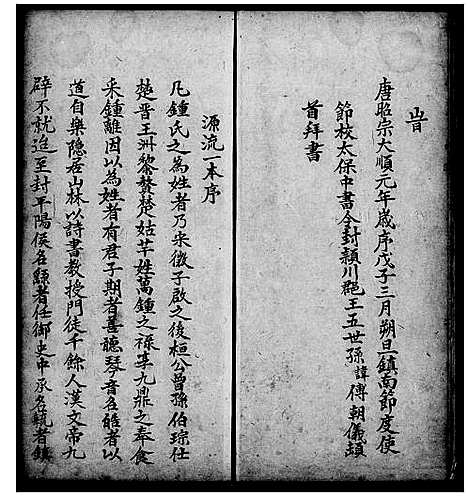 旹
唐昭宗大順元年歲序戊子三月朔旦鎮南節度使
節校太保中書令封潁川郡王五世孫諱傳朝儀頓
首拜書
源流一本序
凡鍾氏之為姓者乃宋微子啟之後桓公曾孫伯琮仕
楚晋王洲黎
楚姑芊姓萬鍾之祿享九鼎之奉食
采鍾離因以為姓者有君子期者善聽琴音名皓者以
道自樂隱居山林以詩書教授門徒千餘人漢文帝九
辟不就進至封平陽侯名繇者任御史中丞名毓者鎮